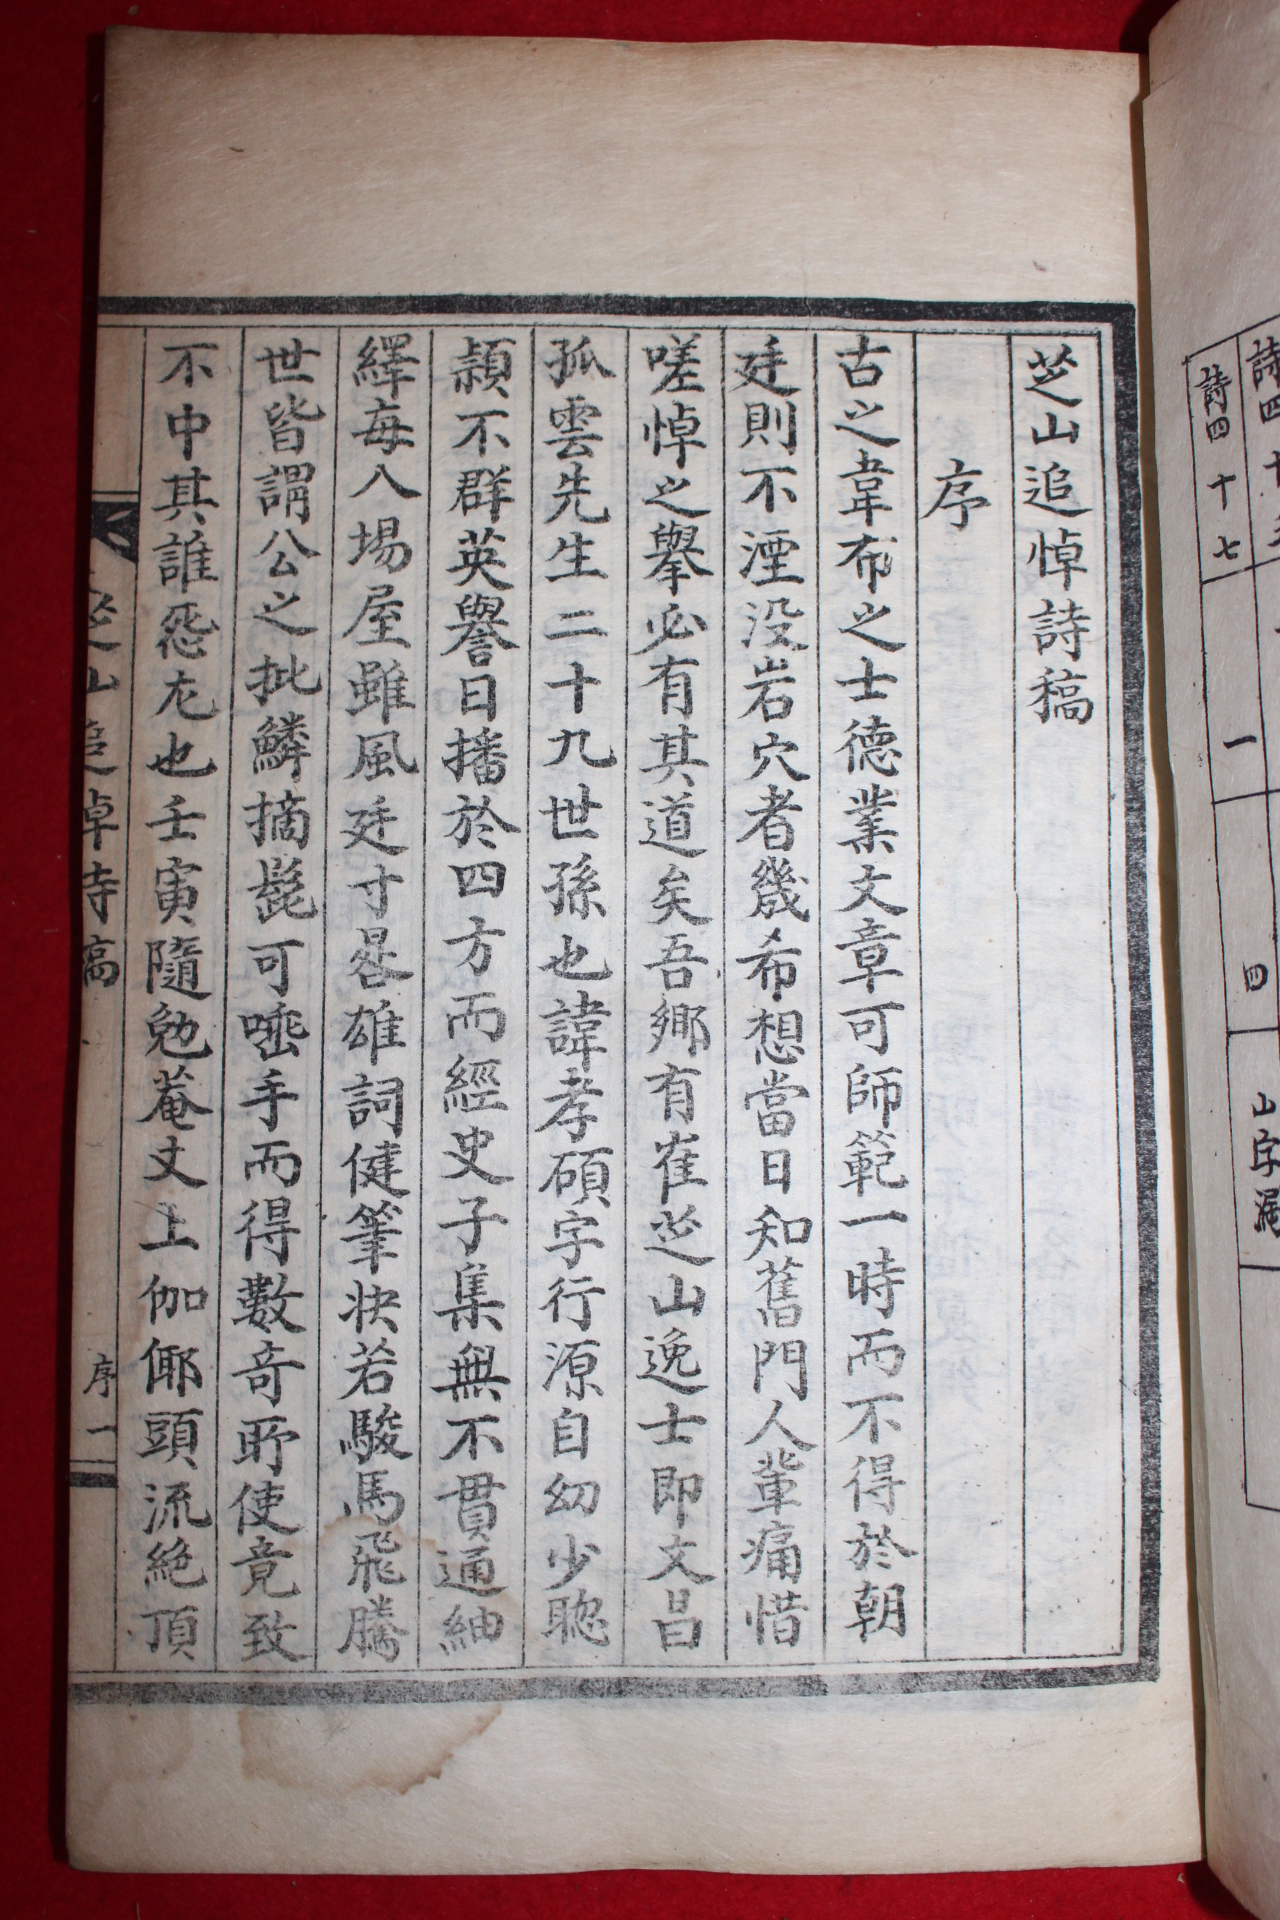 詩四十七
一
四
山字漏
芝山追悼詩稿
序
古之韋布之士德業文章可師範一時而不得於朝
廷則不湮没岩穴者幾希想當日知舊門人輩痛惜
嗟悼之擧必有其道矣吾鄕有崔芝山逸士即文昌
孤雲先生二十九世孫也諱孝碩字行源自幼少聡
穎不群英譽日播於四方而經史子集無不貫通紬
繹每入場屋雖風廷寸晷雄詞健筆快若駿馬飛騰
世皆謂公之批鱗摘髭可唾手而得數奇所使竟致
不中其誰怨尤也壬寅隨勉菴丈上伽倻頭流絶頂
芝山追悼詩稿
序一